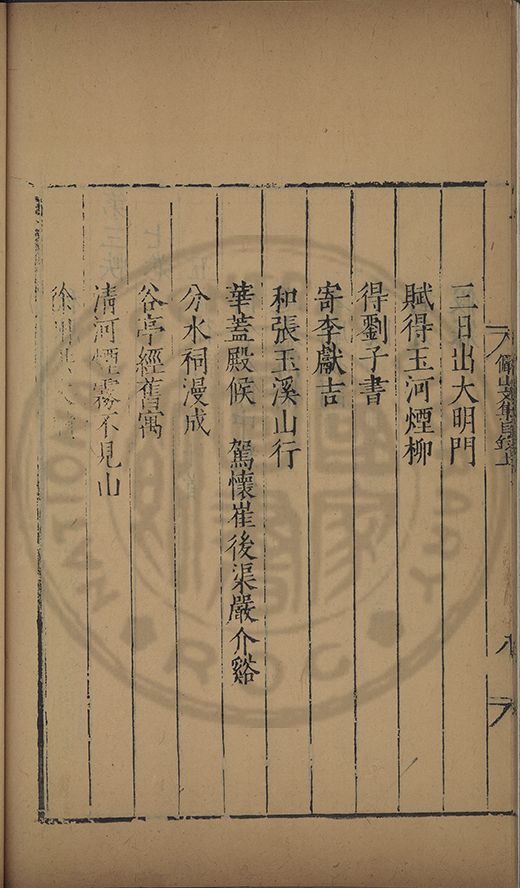 儼山文集目錄上
八
三日出大明門
賦得玉河煙柳
得劉子書
寄李獻吉
和張玉溪山行
華蓋殿候 駕懷崔後渠嚴介谿
分水祠漫成
谷亭經舊寓
清河煙霧不見山
徐州